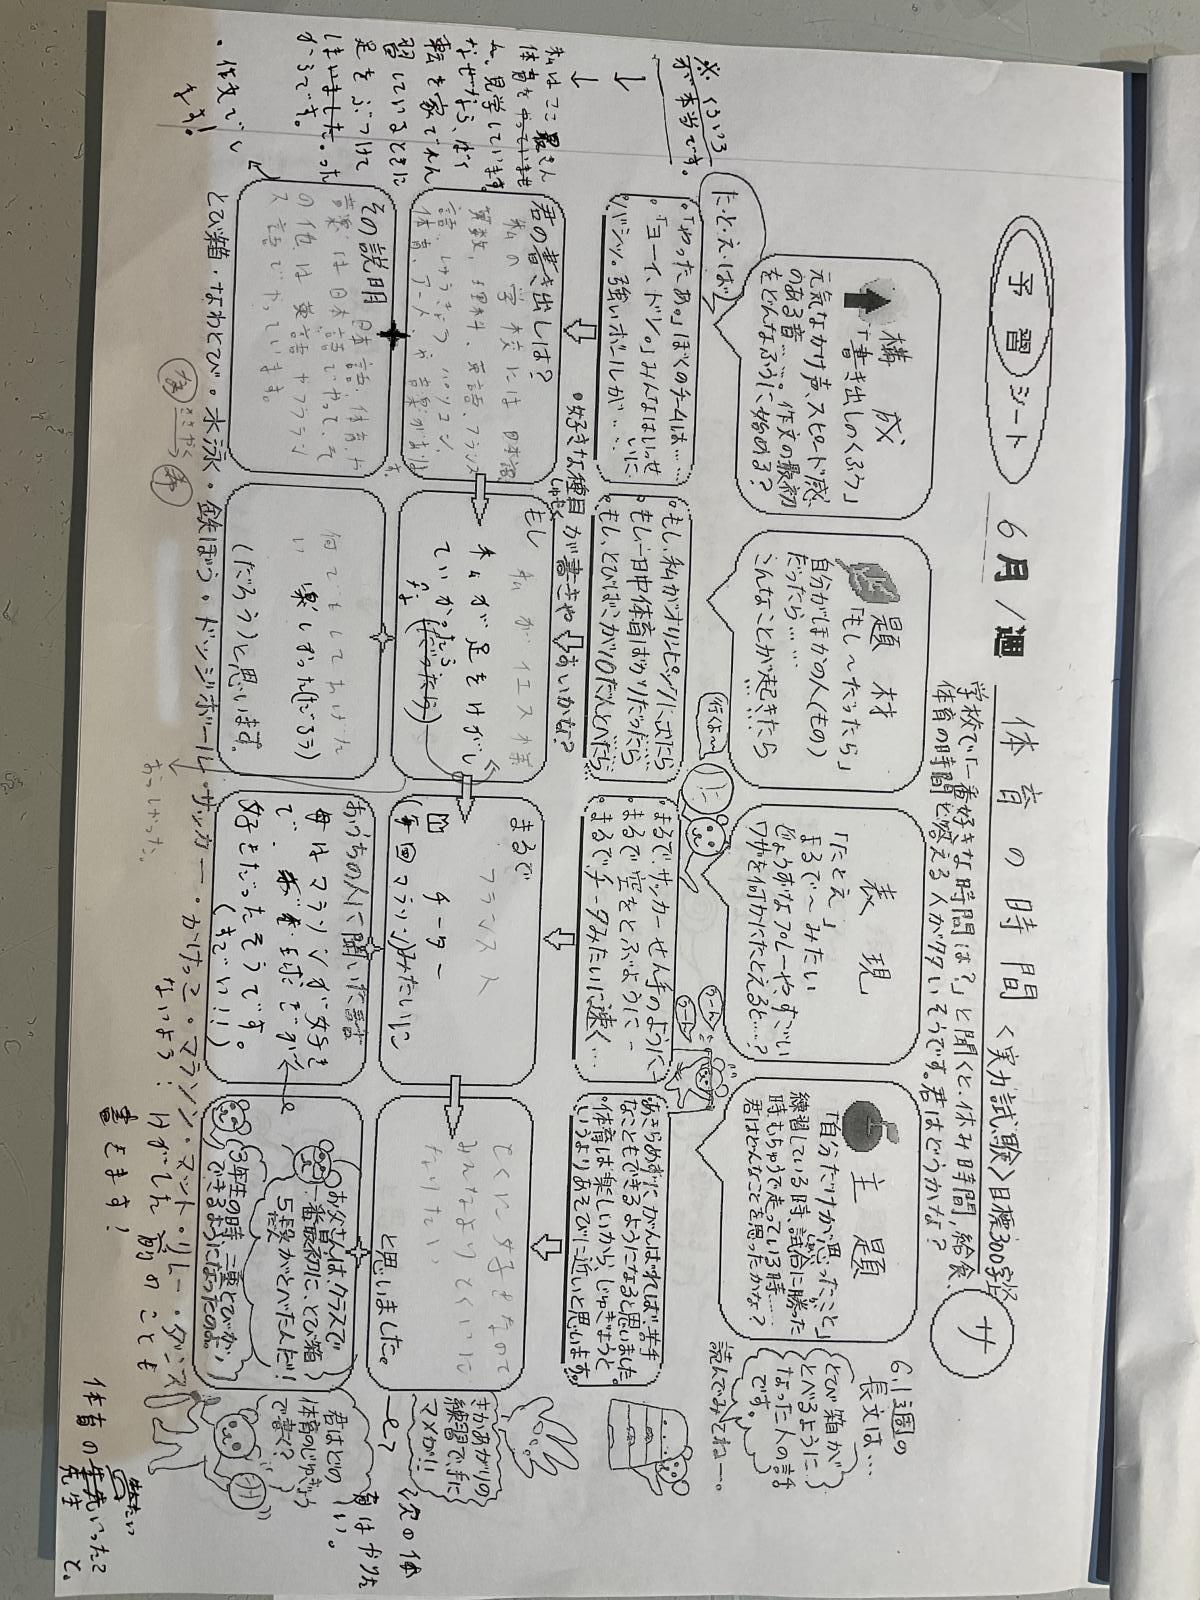 予習シート
6月1週
体育の時間
<実力試験>目標300字
サ
学校で「一番好きな時間は?」と聞くと、休み時間、給食、
体育の時間と答える人が多いそうです。君はどうかな?
6.1週の
長文は…
とび箱が
とべるように
なった人の話
です。
読んでみてねー。
構成
「書き出しのくふう」
元気なかけ声、スピード感
のある音…。作文の最初
をどんなふうに始める?
題材
「もし〜だったら」
自分がほかの人(もの)
だったら……
こんなことが起きたら
……
表現
「たとえ」
まるで〜みたい
じょうずなプレーやすごい
ワザを何かにたとえると…?
主題
「自分だけが思ったこと」
練習している時、試合に勝った
時、もちゅうで走っている時…
君はどんなことを思ったかな?
※
が本当です。
たとえば
行くよ〜
うーん
うーん
。「やったあ。」ぼくのチームは……
。「ヨーイ、ドン。」みんなはいっせいに
。バシッ。強いボールが…
。もし、私がオリンピックに出たら
。もし、一日中体育ばかりだったら
。もし、とびばこが10だんとべたら
。まるで、サッカーせん手のように
。まるで空をとぶように
。まるで、チータみたいに速く…
あきらめずにがんばれば、苦手
なこともできるようになると思いました。
体育は楽しいから、じゅぎょうと
いうよりあそびに近いと思います。
。好きな種目が書きやすいかな?
しゅもく
君の書き出しは?
私の学校には日本語、
算数、理科、英語、フランス
語、パソコン、
体育、アート、音楽があり
ます
もし
私が
私が足をけがし
ていなかったら
(だったら)
まるで
フランス人
チーター
(毎回マラソン)みたいに
とくに好きなので
みんなより、とくいに
なりたい
と思いました。
その説明
日本語、体育、
音楽は日本語でやって、そ
の他は英語やフラン
ス語でやっています。
何でもしておけた
い
楽しかった(だろう)
(だろう)と思います。
おうちの人に聞いた話
母はマラソンが好き
で、
好きだったそうです。
(すごい!!)
お父さんは、クラスで
一番最初に、とび箱
5段がとべたんだ!!
だん
3年生の時、二重とびが
できるようになったのよ。
さかあがりの
練習で、手に
マメが!!
君はどの
体育のじゅぎょう
で書く?
とび箱・なわとび・水泳・鉄ぼう・ドッジボール・サッカー・かけっこ・マラソン・マット・リレー・ダンス
私はここ最きん
体育をやっていませ
ん。見学しています。
なぜなら、
転を家でれん
習しているときに
足をぶつけて
しまいました。った
からです。
ないよう:けがした前のことも
書きます!
次の体
育はやりた
い。
体育の
先生
いったこ
と。